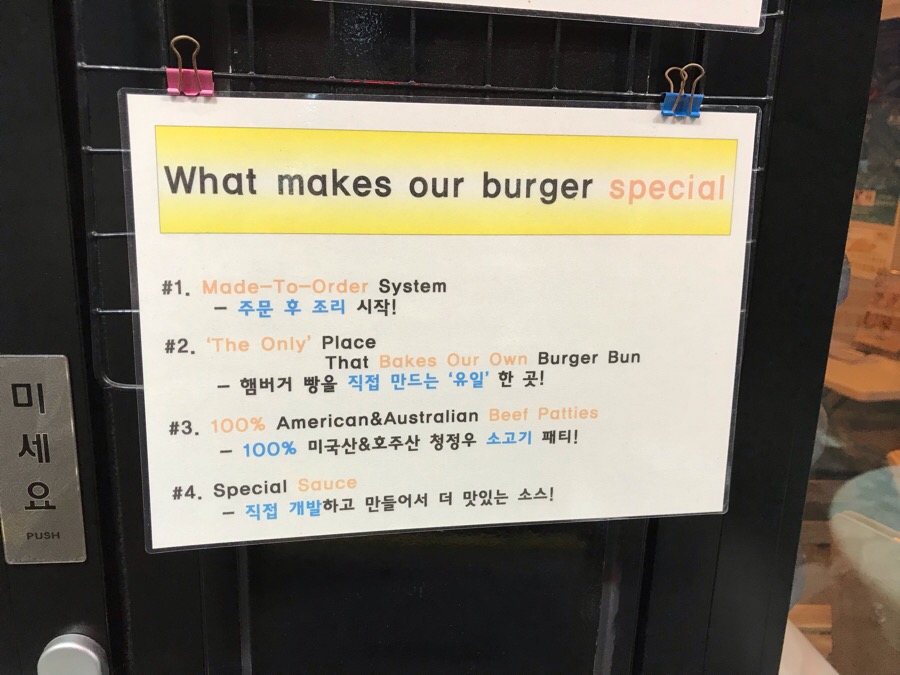 What makes our burger special
#1. Made-To-Order System
- 주문 후 조리 시작!
#2. 'The Only' Place
That Bakes Our Own Burger Bun
- 햄버거 빵을 직접 만드는 '유일' 한 곳!
#3. 100% American&Australian Beef Patties
- 100% 미국산&호주산 청정우 소고기 패티!
#4. Special Sauce
- 직접 개발하고 만들어서 더 맛있는 소스!
미세요
PUSH